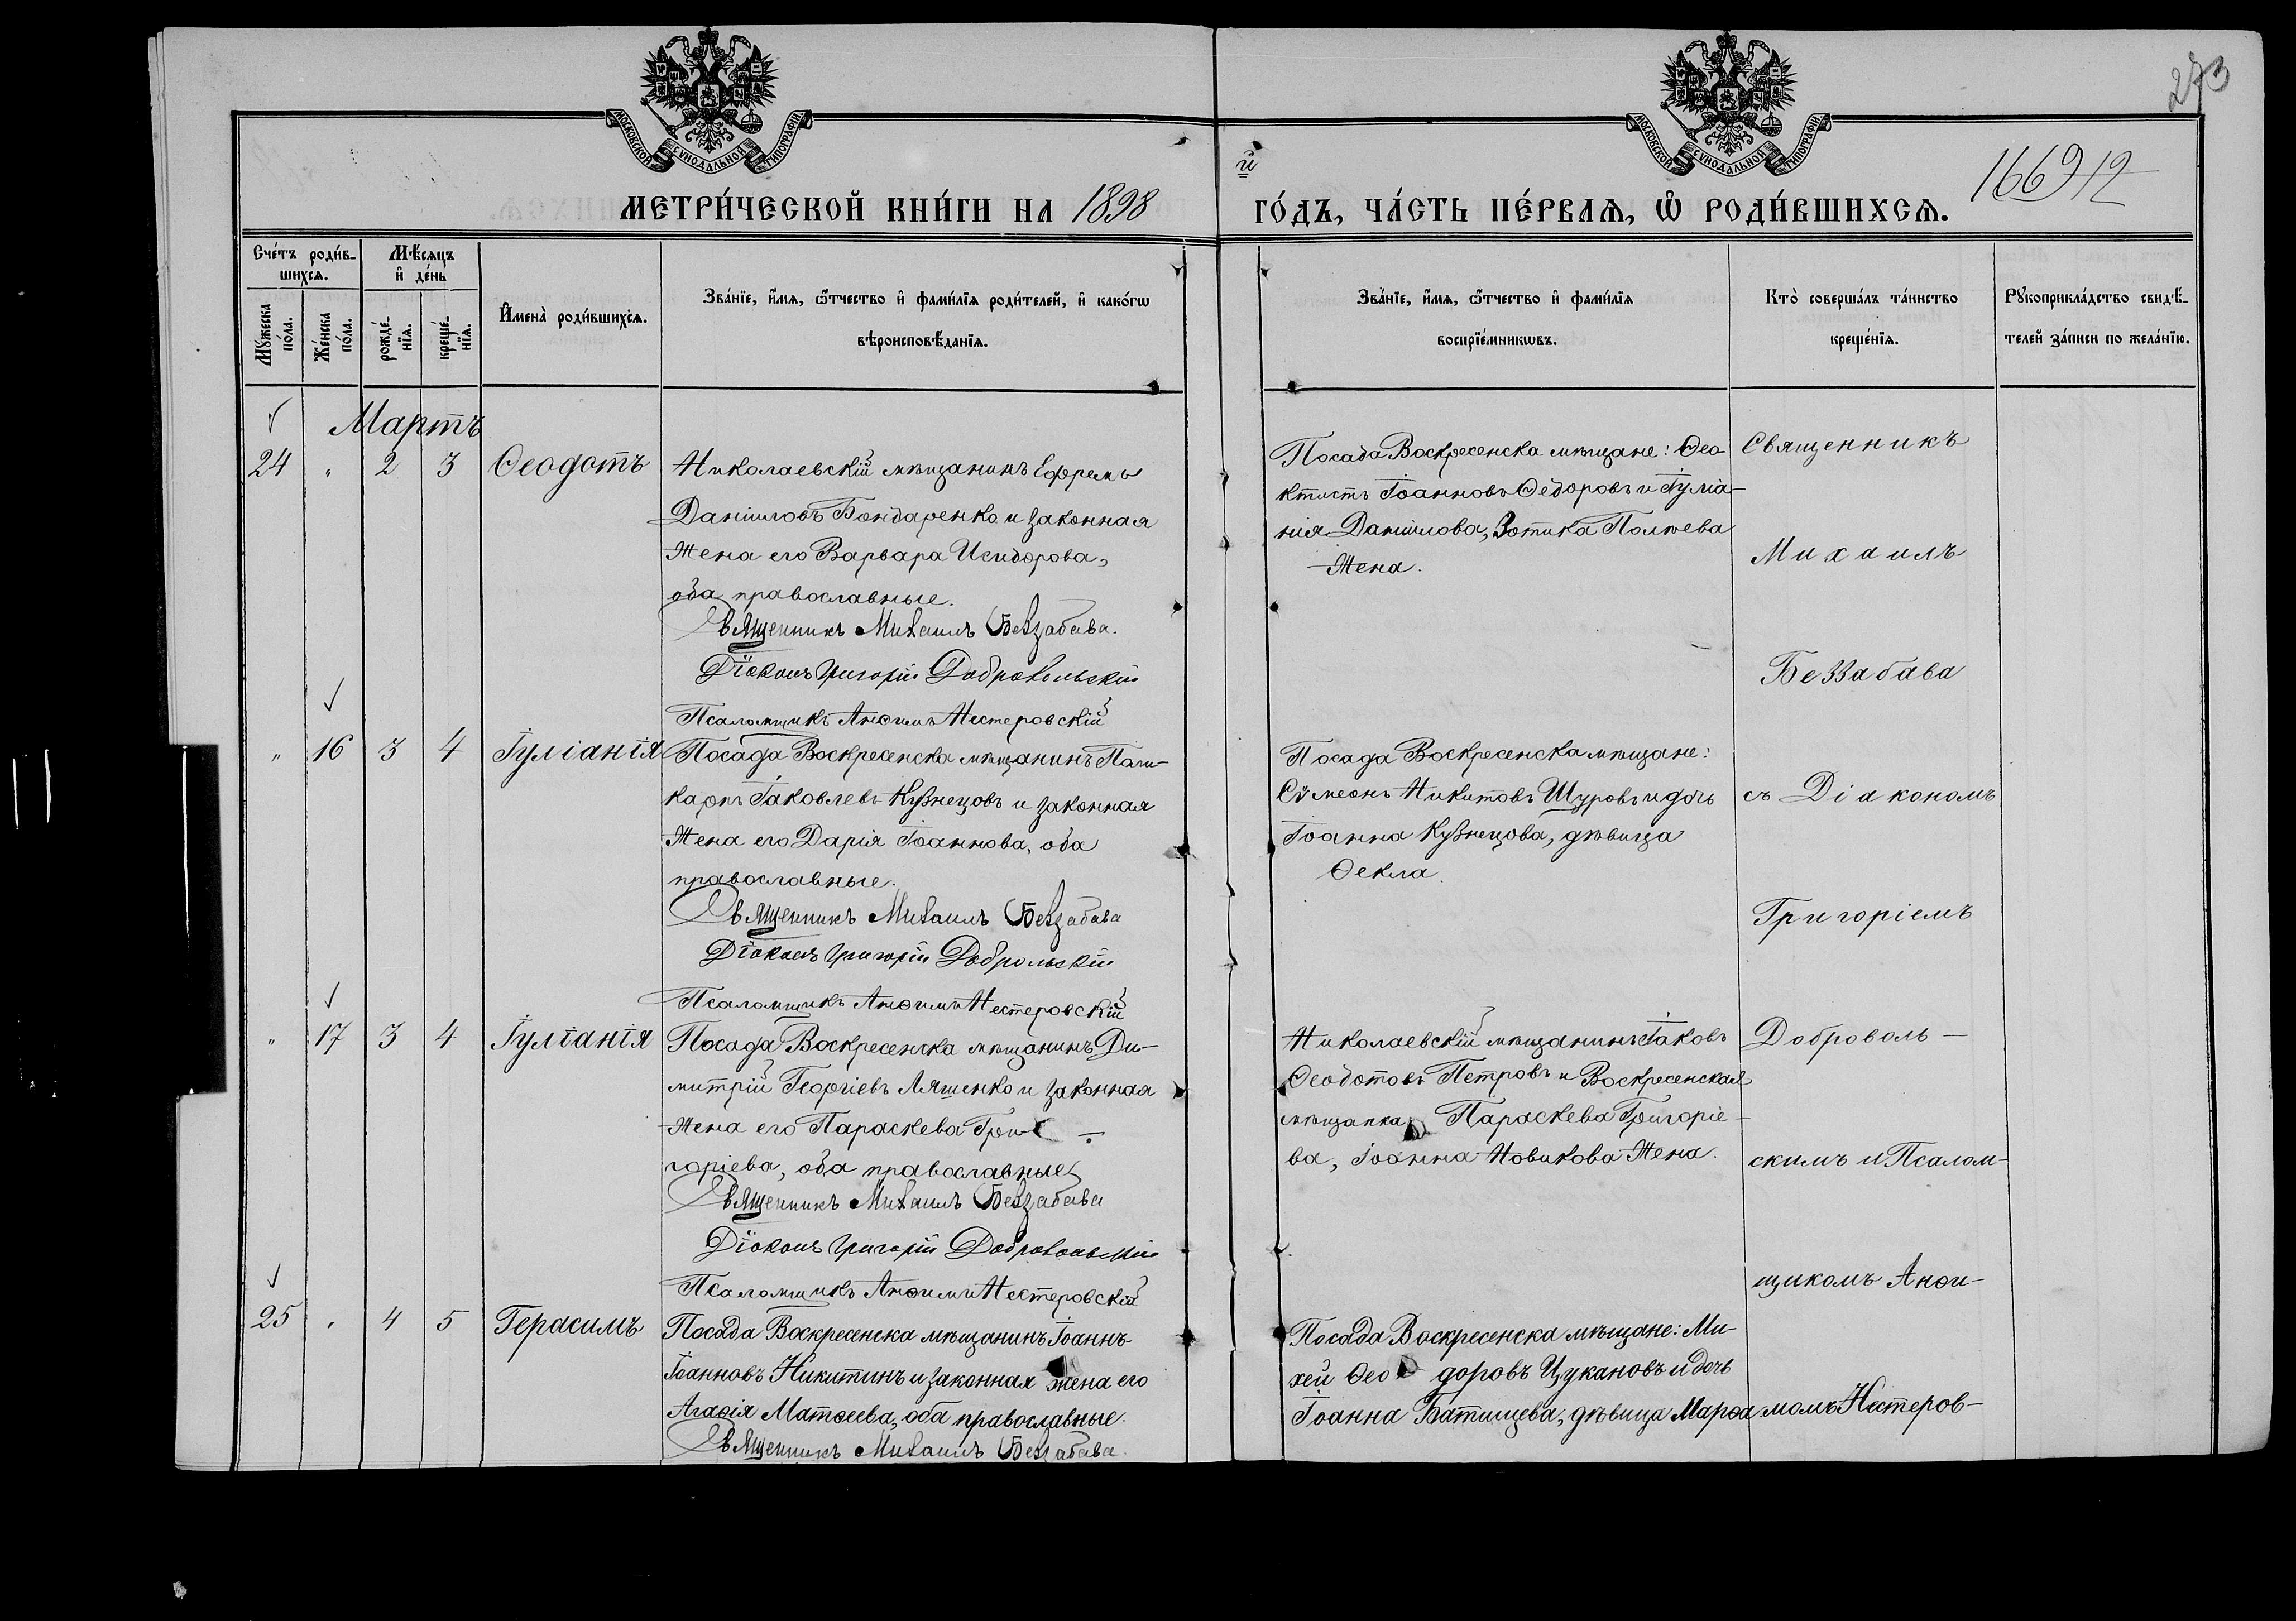 273
МОСКОВСКОЙ СѴНОДАЛЬНОЙ ТИПОГРАФІИ
МОСКОВСКОЙ СѴНОДАЛЬНОЙ ТИПОГРАФІИ
166912
МЕТРИ́ЧЕСКОЙ КНИ́ГИ НА 1898
й ГО́ДЪ, ЧА́СТЬ ПЕ́РВАЯ, Ѿ РОДИ́ВШИХСЯ.
Сче́тъ роди́в-
шихся.
Му́жеска по́ла.
Же́нска по́ла.
Мѣ́сяцъ
и де́нь
рожде́-
нїя.
креще́-
нїя.
Имена̀ роди́вшихся.
Зва́нїе, и́мя, ѻ́тчество и фами́лїя роди́телей, и како́гѡ
вѣроисповѣ́данїя.
Зва́нїе, и́мя, ѻ́тчество и фами́лїя
воспрїе́мникѡвъ.
Кто̀ соверша́лъ та́инство
креще́нїя.
Рукоприкла́дство свидѣ́-
телей за́писи по жела́нїю.
Мартъ
24 " 2 3 Ѳеодотъ
Николаевскій мѣщанинъ Ефремъ
Даніиловъ Бондаренко и законная
жена его Варвара Исидорова,
оба православные.
Священникъ Михаилъ Беззабава.
Діаконъ Григорій Добровольскій
Псаломщикъ Анѳимъ Нестеровскій
Посада Воскресенска мѣщане: Ѳео-
ктистъ Іоанновъ Ѳедоровъ и Іуліа-
нія Даніилова, Зотика Полтева
жена.
" 16 3 4 Іуліанія
Посада Воскресенска мѣщанинъ Поли-
карпъ Іаковлевъ Кузнецовъ и законная
жена его Дарія Іоаннова, оба
православные.
Священникъ Михаилъ Беззабава
Діаконъ Григорій Добровольскій
Псаломщикъ Анѳимъ Нестеровскій
Посада Воскресенска мѣщане:
Сѵмеонъ Никитовъ Щуровъ и дочь
Іоанна Кузнецова, дѣвица
Ѳекла.
" 17 3 4 Іуліанія
Посада Воскресенска мѣщанинъ Ди-
митрій Георгіевъ Ляшенко и законная
жена его Параскева Гри-
горіева, оба православные
Священникъ Михаилъ Беззабава
Діаконъ Григорій Добровольскій
Псаломщикъ Анѳимъ Нестеровскій
Николаевскій мѣщанинъ Іаковъ
Ѳеодотовъ Петровъ и Воскресенская
мѣщанка Параскева Григоріе-
ва, Іоанна Новикова жена.
25 " 4 5 Герасимъ
Посада Воскресенска мѣщанинъ Іоаннъ
Іоанновъ Никитинъ и законная жена его
Агаѳія Матѳеева, оба православные.
Священникъ Михаилъ Беззабава.
Посада Воскресенска мѣщане: Ми-
хей Ѳео доровъ Цукановъ и дочь
Іоанна Батищева, дѣвица Марѳа
Священникъ
Михаилъ
Беззабава
съ Діакономъ
Григоріемъ
Доброволь-
скимъ и Псалом-
щикомъ Анѳи-
момъ Нестеров-